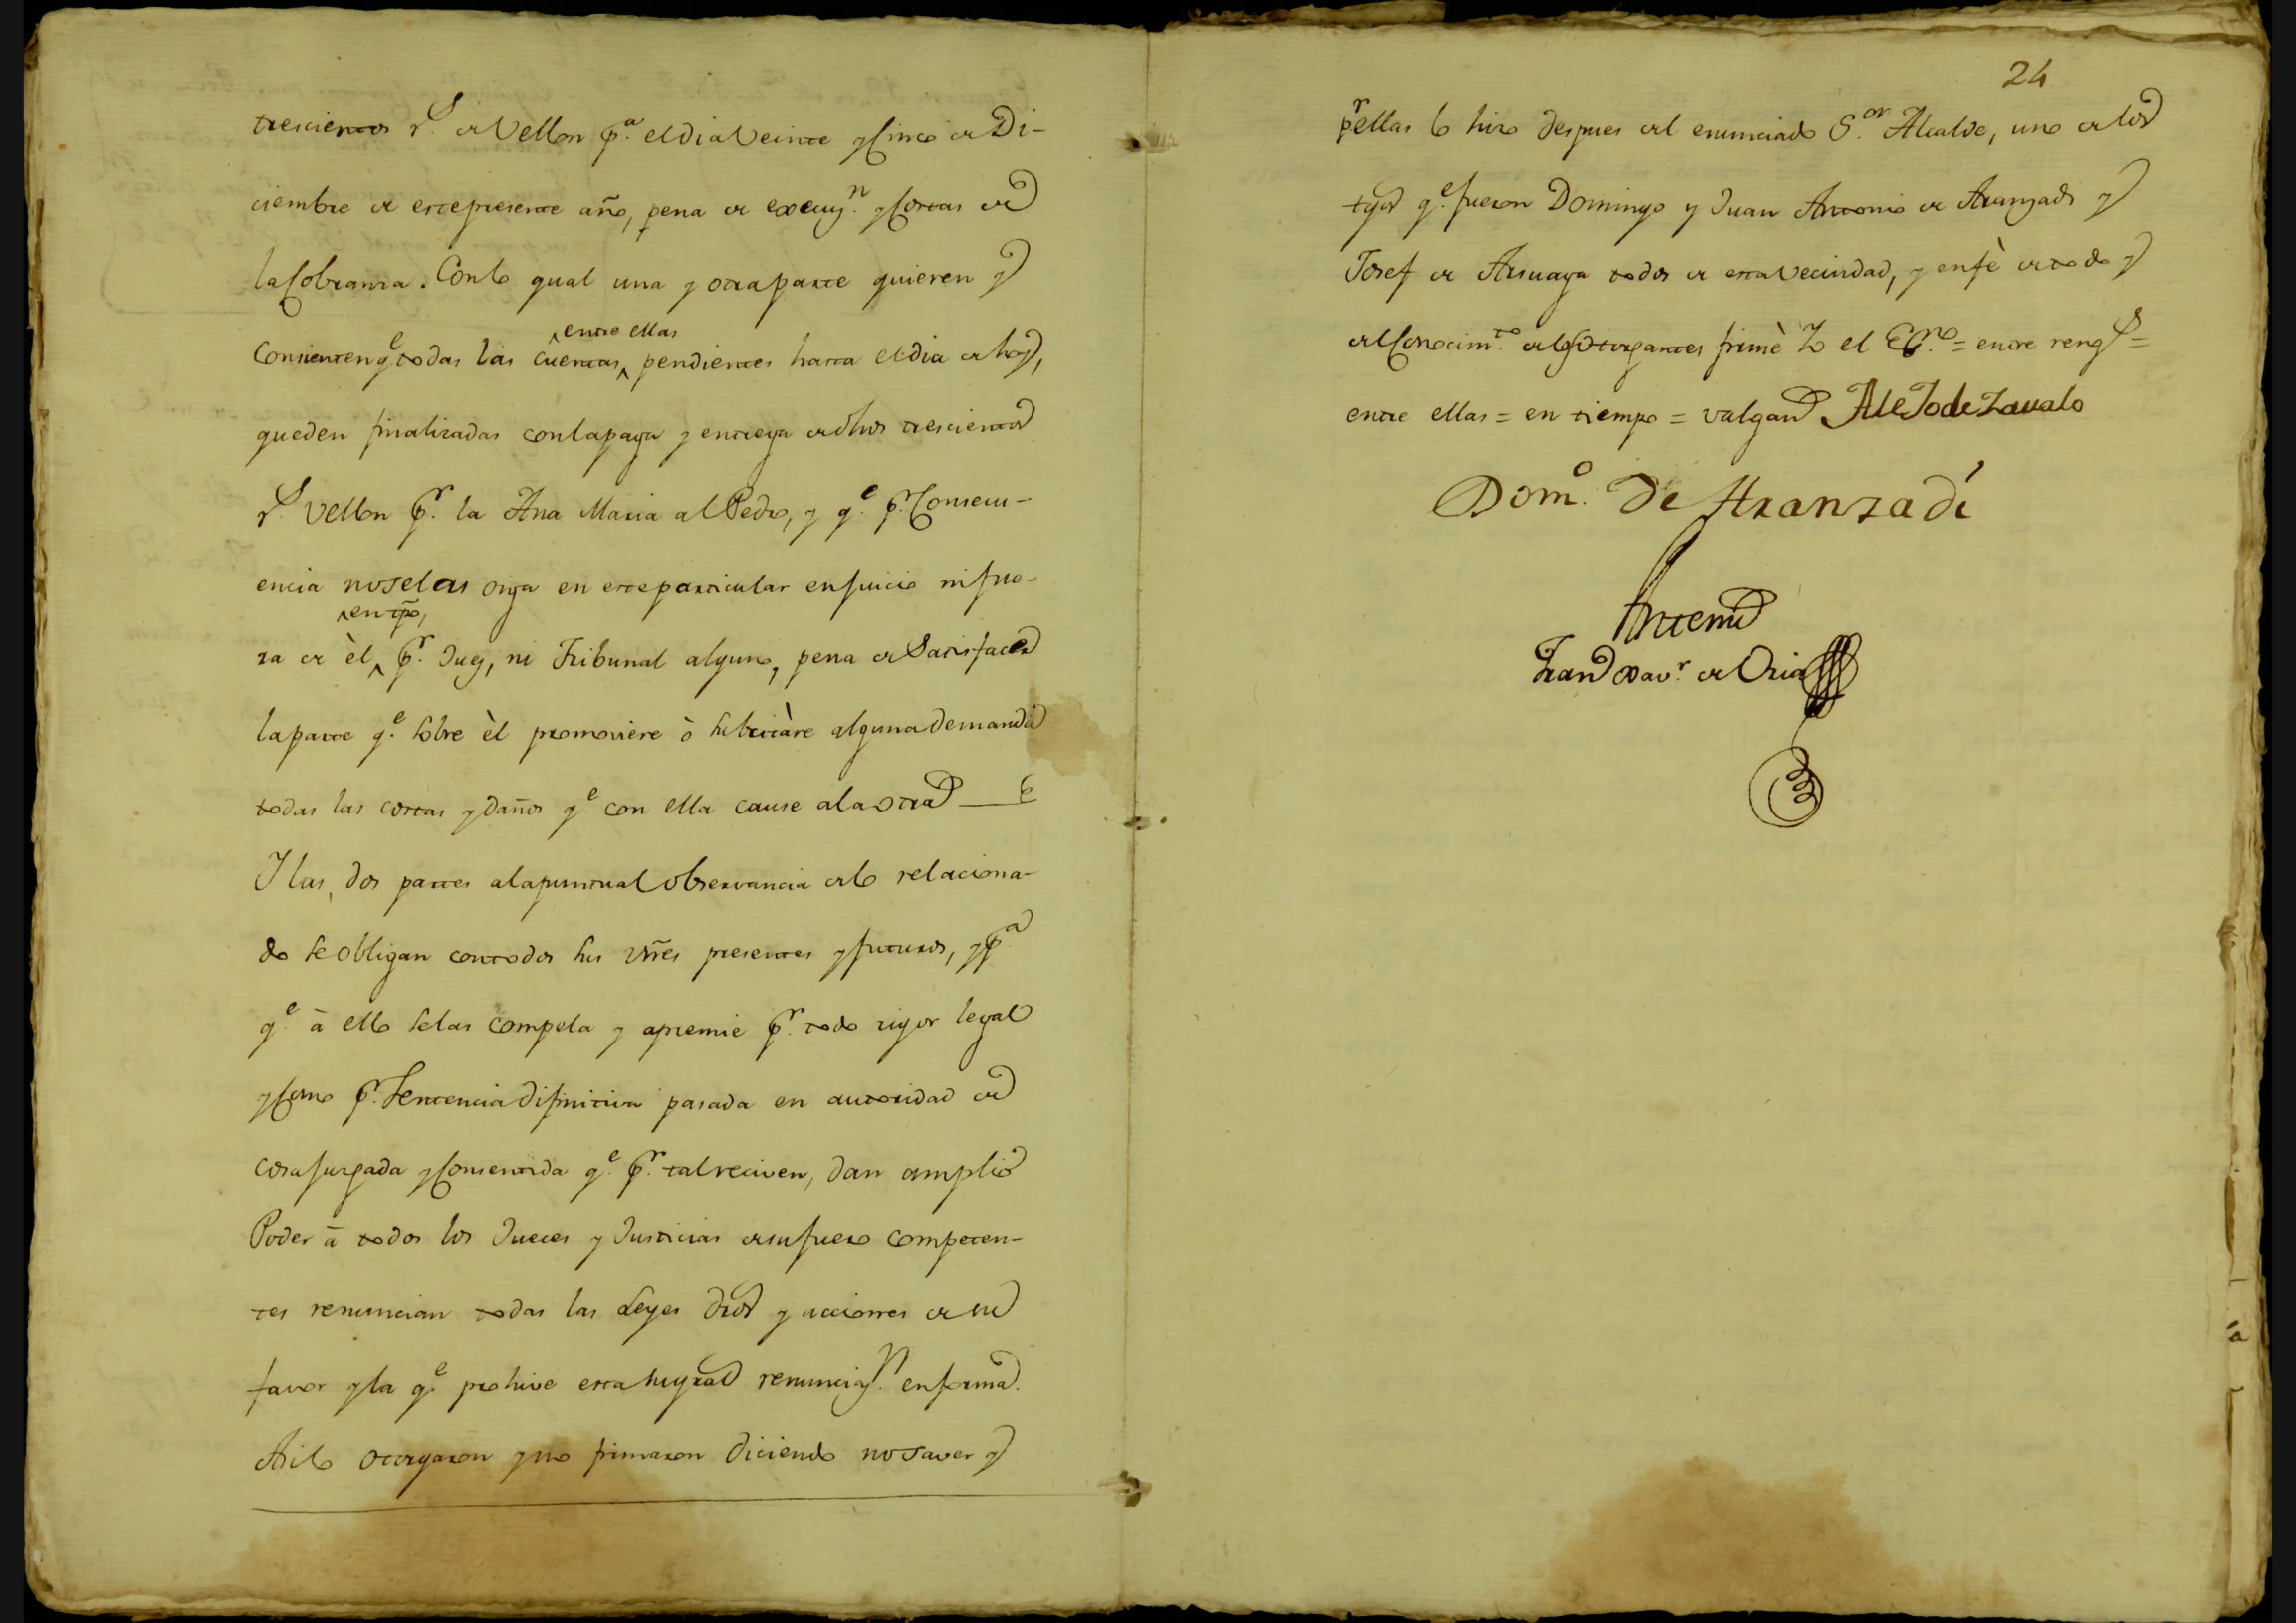 trescientos r.s de Vellon p.a el dia Veinte y Cinco de Di-
ciembre de este presente año, pena de execuz.n y Costas de
la Cobranza. Con lo qual una y otra parte quieren y
Consienten q.e todas las cuentas ^entre ellas pendientes hasta el dia de hoy,
queden finalizadas con la paga y entrega de dhos trescientos
r.s Vellon p.r la Ana Maria al Pedro, y q.e p.r Consecu-
encia no se las oiga en este particular en juicio ni fue-
ra de èl ^en tpo, p.r Juez, ni Tribunal alguno, pena de Satisfacer
la parte q.e sobre èl promoviere ò suscitàre alguna demanda
todas las costas y daños q.e con ella cause a la otra
Y las dos partes a la puntual observancia de lo relaciona-
do se obligan con todos sus vñes presentes y futuros, y p.a
q.e à ello se las compela y apremie p.r todo rigor legal
y Como p.r Sentencia difinitiva pasada en autoridad de
cosa juzgada y Consentida q.e p.r tal reciven, dan amplio
Poder à todos los Jueces y Justicias de su fuero competen-
tes renuncian todas las Leyes dros y acciones de su
favor y la q.e prohive esta gral renunciaz.n en forma.
Asi lo otorgaron y no firmaron diciendo no saver y
24
p.r ellas lo hizo despues del enunciado S.or Alcalde, uno de los
tgos q.e fueron Domingo y Juan Antonio de Aranzadi y
Josef de Arsuaga todos de esta vecindad, y en fè de todo y
del Conocim.to de los otorgantes firmè Yo el Es.no = entre reng.s =
entre ellas = en tiempo = valgan Alejo de Zavala
Dom.o de Aranzadi
Antemi
Fran Xav.r de Oria